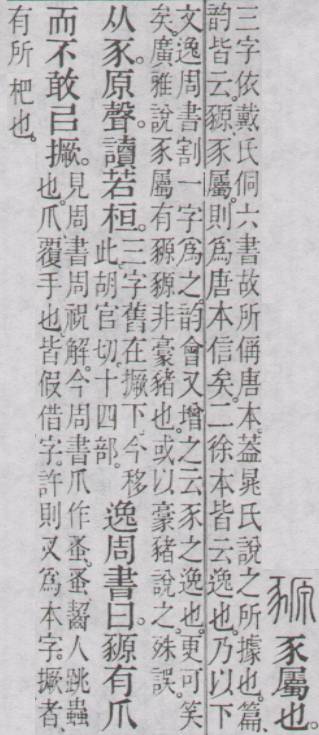 豲豕屬也。
三字依戴氏侗六書故所偁唐本。葢晁氏說之所據也。篇、
韵皆云。豲、豕屬。則爲唐本信矣。二徐本皆云逸也。乃以下
文逸周書割一字爲之。韵會又增之云豕之逸也。更可笑
矣。廣雅說豕屬有豲豲非豪豬也。或以豪豬說之。殊誤。
从豕。原聲。讀若桓。三字舊在撅下。今移此。胡官切。十四部。逸周書曰。豲有爪
而不敢㠯撅。見周書周祝解。今周書爪作蚤。蚤、齧人跳蟲
也。爪、覆手也。皆假借字。許則㕚爲本字。撅者、
有所杷也。